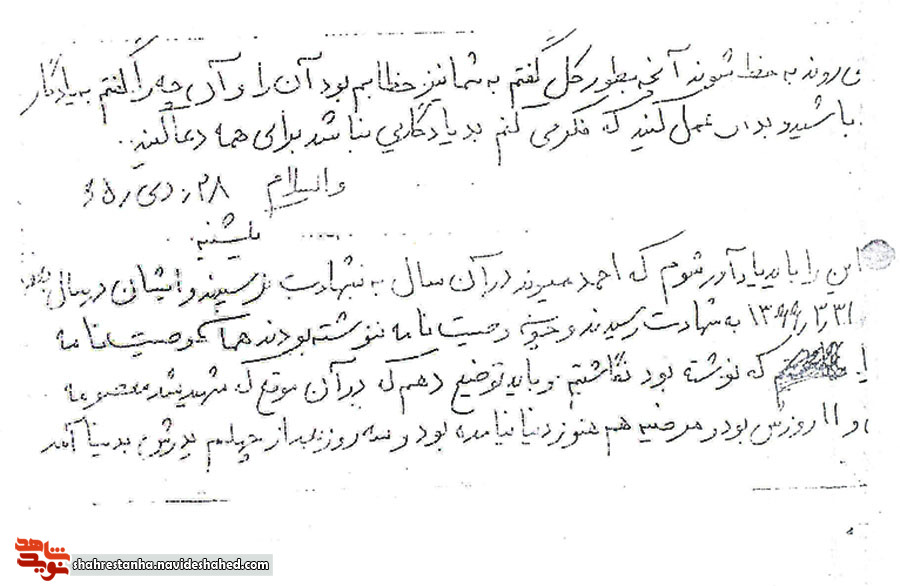 روند به حفظ شوند آنچه بطور کل گفتم به شما نیز خطابم بود آن را و آن چه را گفتم به یادگار
باشید و بدان عمل کنید که فکر می کنم بد یادگاری نباشد برای همه دعا کنید.
والسلام ۲۸ دی ۶۵
یکشنبه
این را باید یادآور شوم که احمد میوند در آن سال به شهادت نرسیدند و ایشان در سال
۱۳۶۶/۳/۳۱ به شهادت رسیدند و چون وصیت نامه ننوشته بودند همان وصیت نامه
که نوشته بود نگاشتم و باید توضیح دهم که در آن موقع که شهید شد معصومه
و ۱۱ روزش بود و مرضیه هم هنوز دنیا نیامده بود و سه روز بعد از چهلم پدرش بدنیا آمد
نوید شاهد
shahrestanha.navideshahed.com